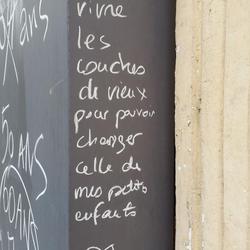 vivre
les
couches
de vieux
pour pouvoir
changer
celle de
mes petits
enfants
ans
50 ANS